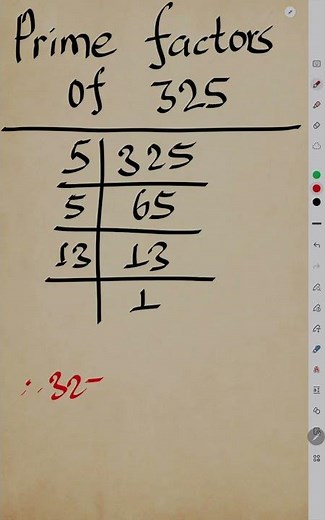 Prime factors
of 325
5 325
5 65
13 13
1
∴ 32